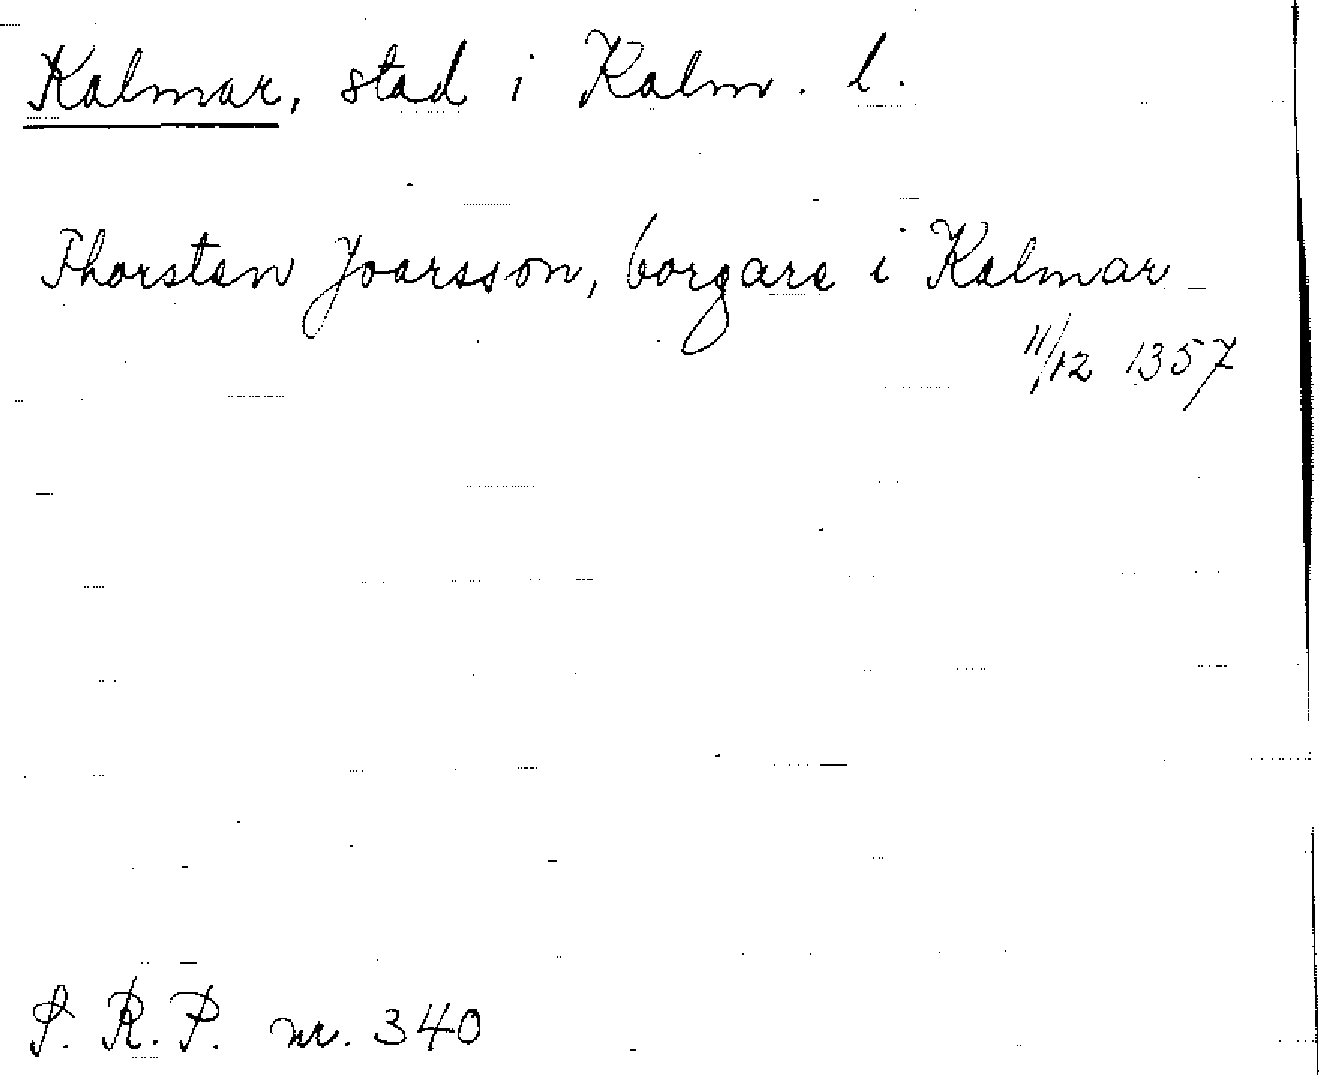 Kalmar, stad i Kalm. l.
Thorsten Joarsson, borgare i Kalmar
11/12 1357
S. R. P. nr. 340